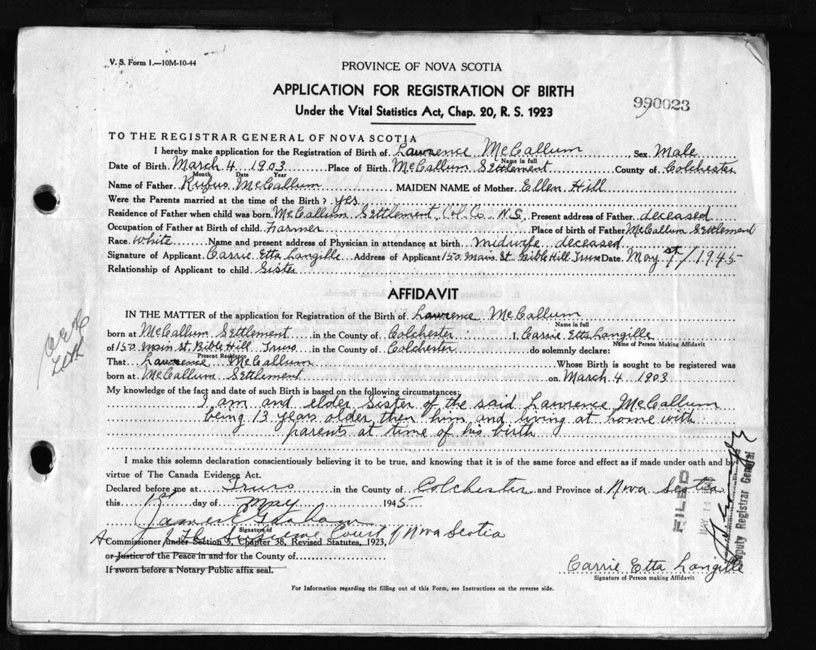 V. S. Form 1.—10M-10-44
PROVINCE OF NOVA SCOTIA
APPLICATION FOR REGISTRATION OF BIRTH
990023
Under the Vital Statistics Act, Chap. 20, R. S. 1923
TO THE REGISTRAR GENERAL OF NOVA SCOTIA
I hereby make application for the Registration of Birth of Lawrence McCallum Sex Male
Name in full
Date of Birth March 4 1903 Place of Birth McCallum Settlement County of Colchester
Month Date Year
Name of Father Rufus McCallum MAIDEN NAME of Mother Ellen Hill
Were the Parents married at the time of the Birth? yes
Residence of Father when child was born McCallum Settlement, Col. Co. N.S. Present address of Father deceased
Occupation of Father at Birth of child farmer Place of birth of Father McCallum Settlement
Race White Name and present address of Physician in attendance at birth midwife deceased
Signature of Applicant Carrie Etta Langille Address of Applicant 150 Main St. Bible Hill, Truro Date May 1st / 1945
Relationship of Applicant to child Sister
AFFIDAVIT
IN THE MATTER of the application for Registration of the Birth of Lawrence McCallum
Name in full
born at McCallum Settlement in the County of Colchester I, Carrie Etta Langille
Name of Person Making Affidavit
of 150 Main St. Bible Hill, Truro in the County of Colchester do solemnly declare:
Present Residence
That Lawrence McCallum Whose Birth is sought to be registered was
born at McCallum Settlement on March 4 1903
My knowledge of the fact and date of such Birth is based on the following circumstances:
I am and elder sister of the said Lawrence McCallum
being 13 years older then him and living at home with
parents at time of his birth
I make this solemn declaration conscientiously believing it to be true, and knowing that it is of the same force and effect as if made under oath and by
virtue of The Canada Evidence Act.
Declared before me at Truro in the County of Colchester and Province of Nova Scotia
this 1st day of May 1945
Signature of
A Commissioner under Section 9, Chapter 38, Revised Statutes, 1923, of The Supreme Court of Nova Scotia
or Justice of the Peace in and for the County of
If sworn before a Notary Public affix seal.
Carrie Etta Langille
Signature of Person making Affidavit
For Information regarding the filling out of this Form, see Instructions on the reverse side.
FILED
Deputy Registrar General